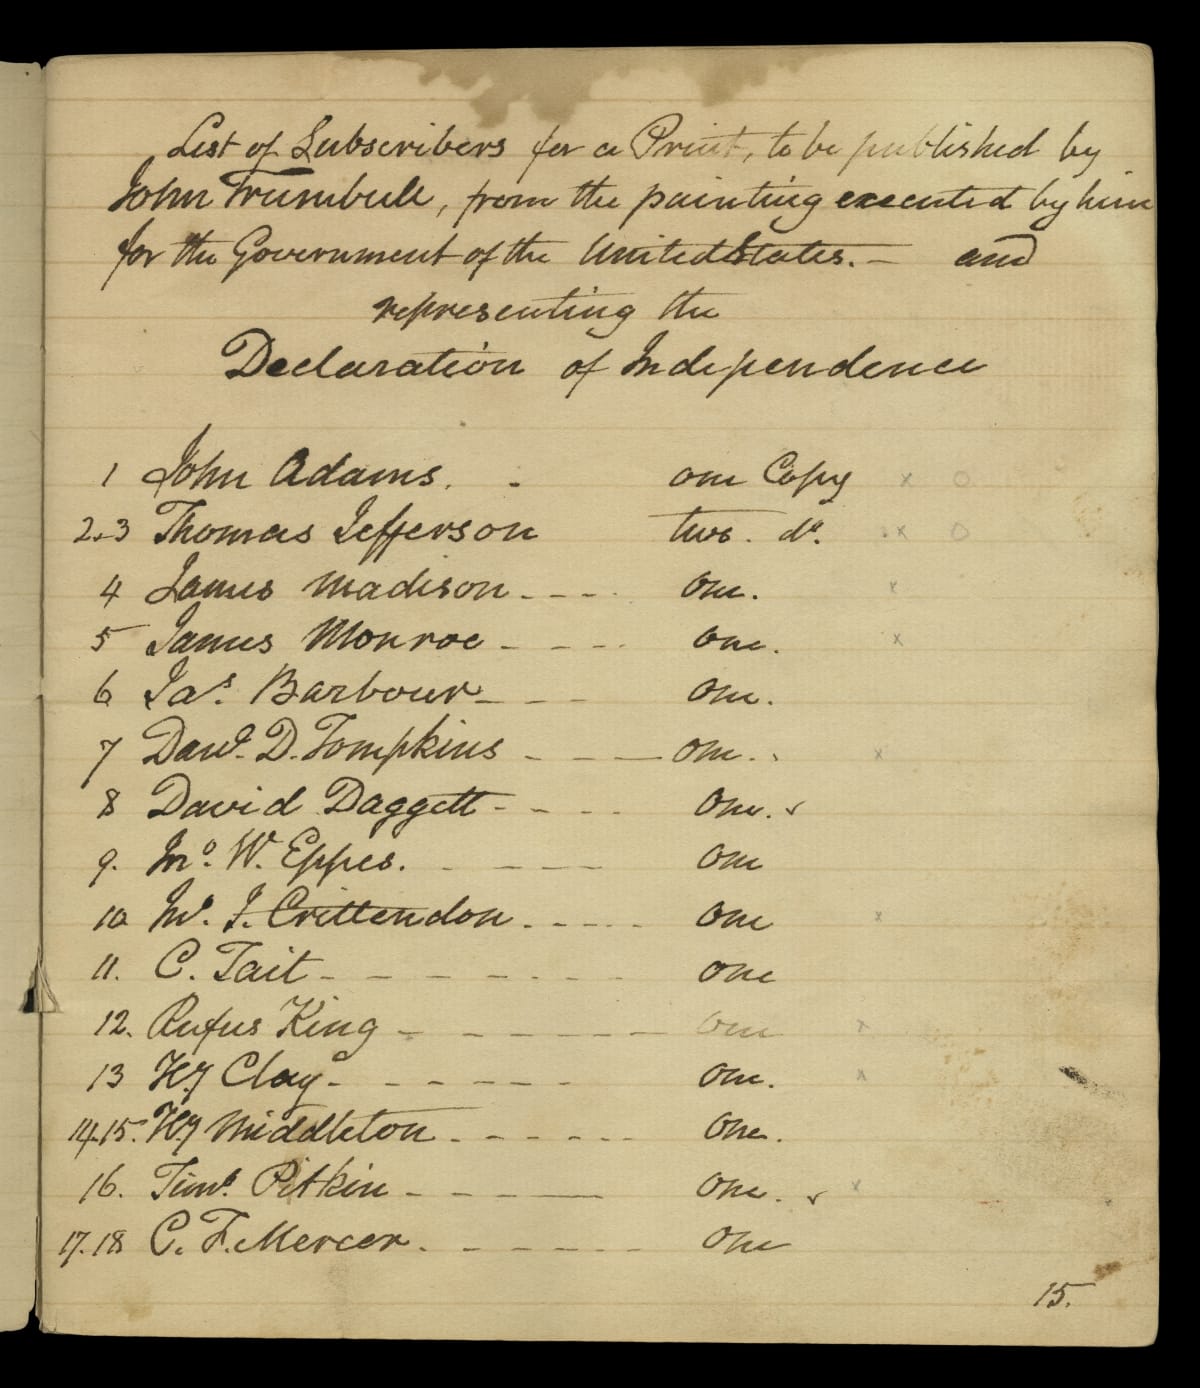 List of Subscribers for a Print, to be published by
John Trumbull, from the painting executed by him
for the Government of the United States. — and
representing the
Declaration of Independence
1 John Adams. - one Copy x O
2.3 Thomas Jefferson two. do. x O
4 James Madison - - - - one. x
5 James Monroe - - - - one. x
6 Jas. Barbour - - - one.
7 Danl. D. Tompkins - - — one. x
8 David Daggett - - - - one. ✓
9. Jno. W. Eppes. - - - one
10 Jno. J. Crittendon - - - - - one x
11. C. Tait - - - - - - - one
12. Rufus King - - - - - — one x
13 Hy Clay - - - - - - one. x
14.15. Hy Middleton - - - - - - one.
16. Timo. Pitkin - - - - — one. ✓ x
17.18 C. F. Mercer. - - - - - - one
15.